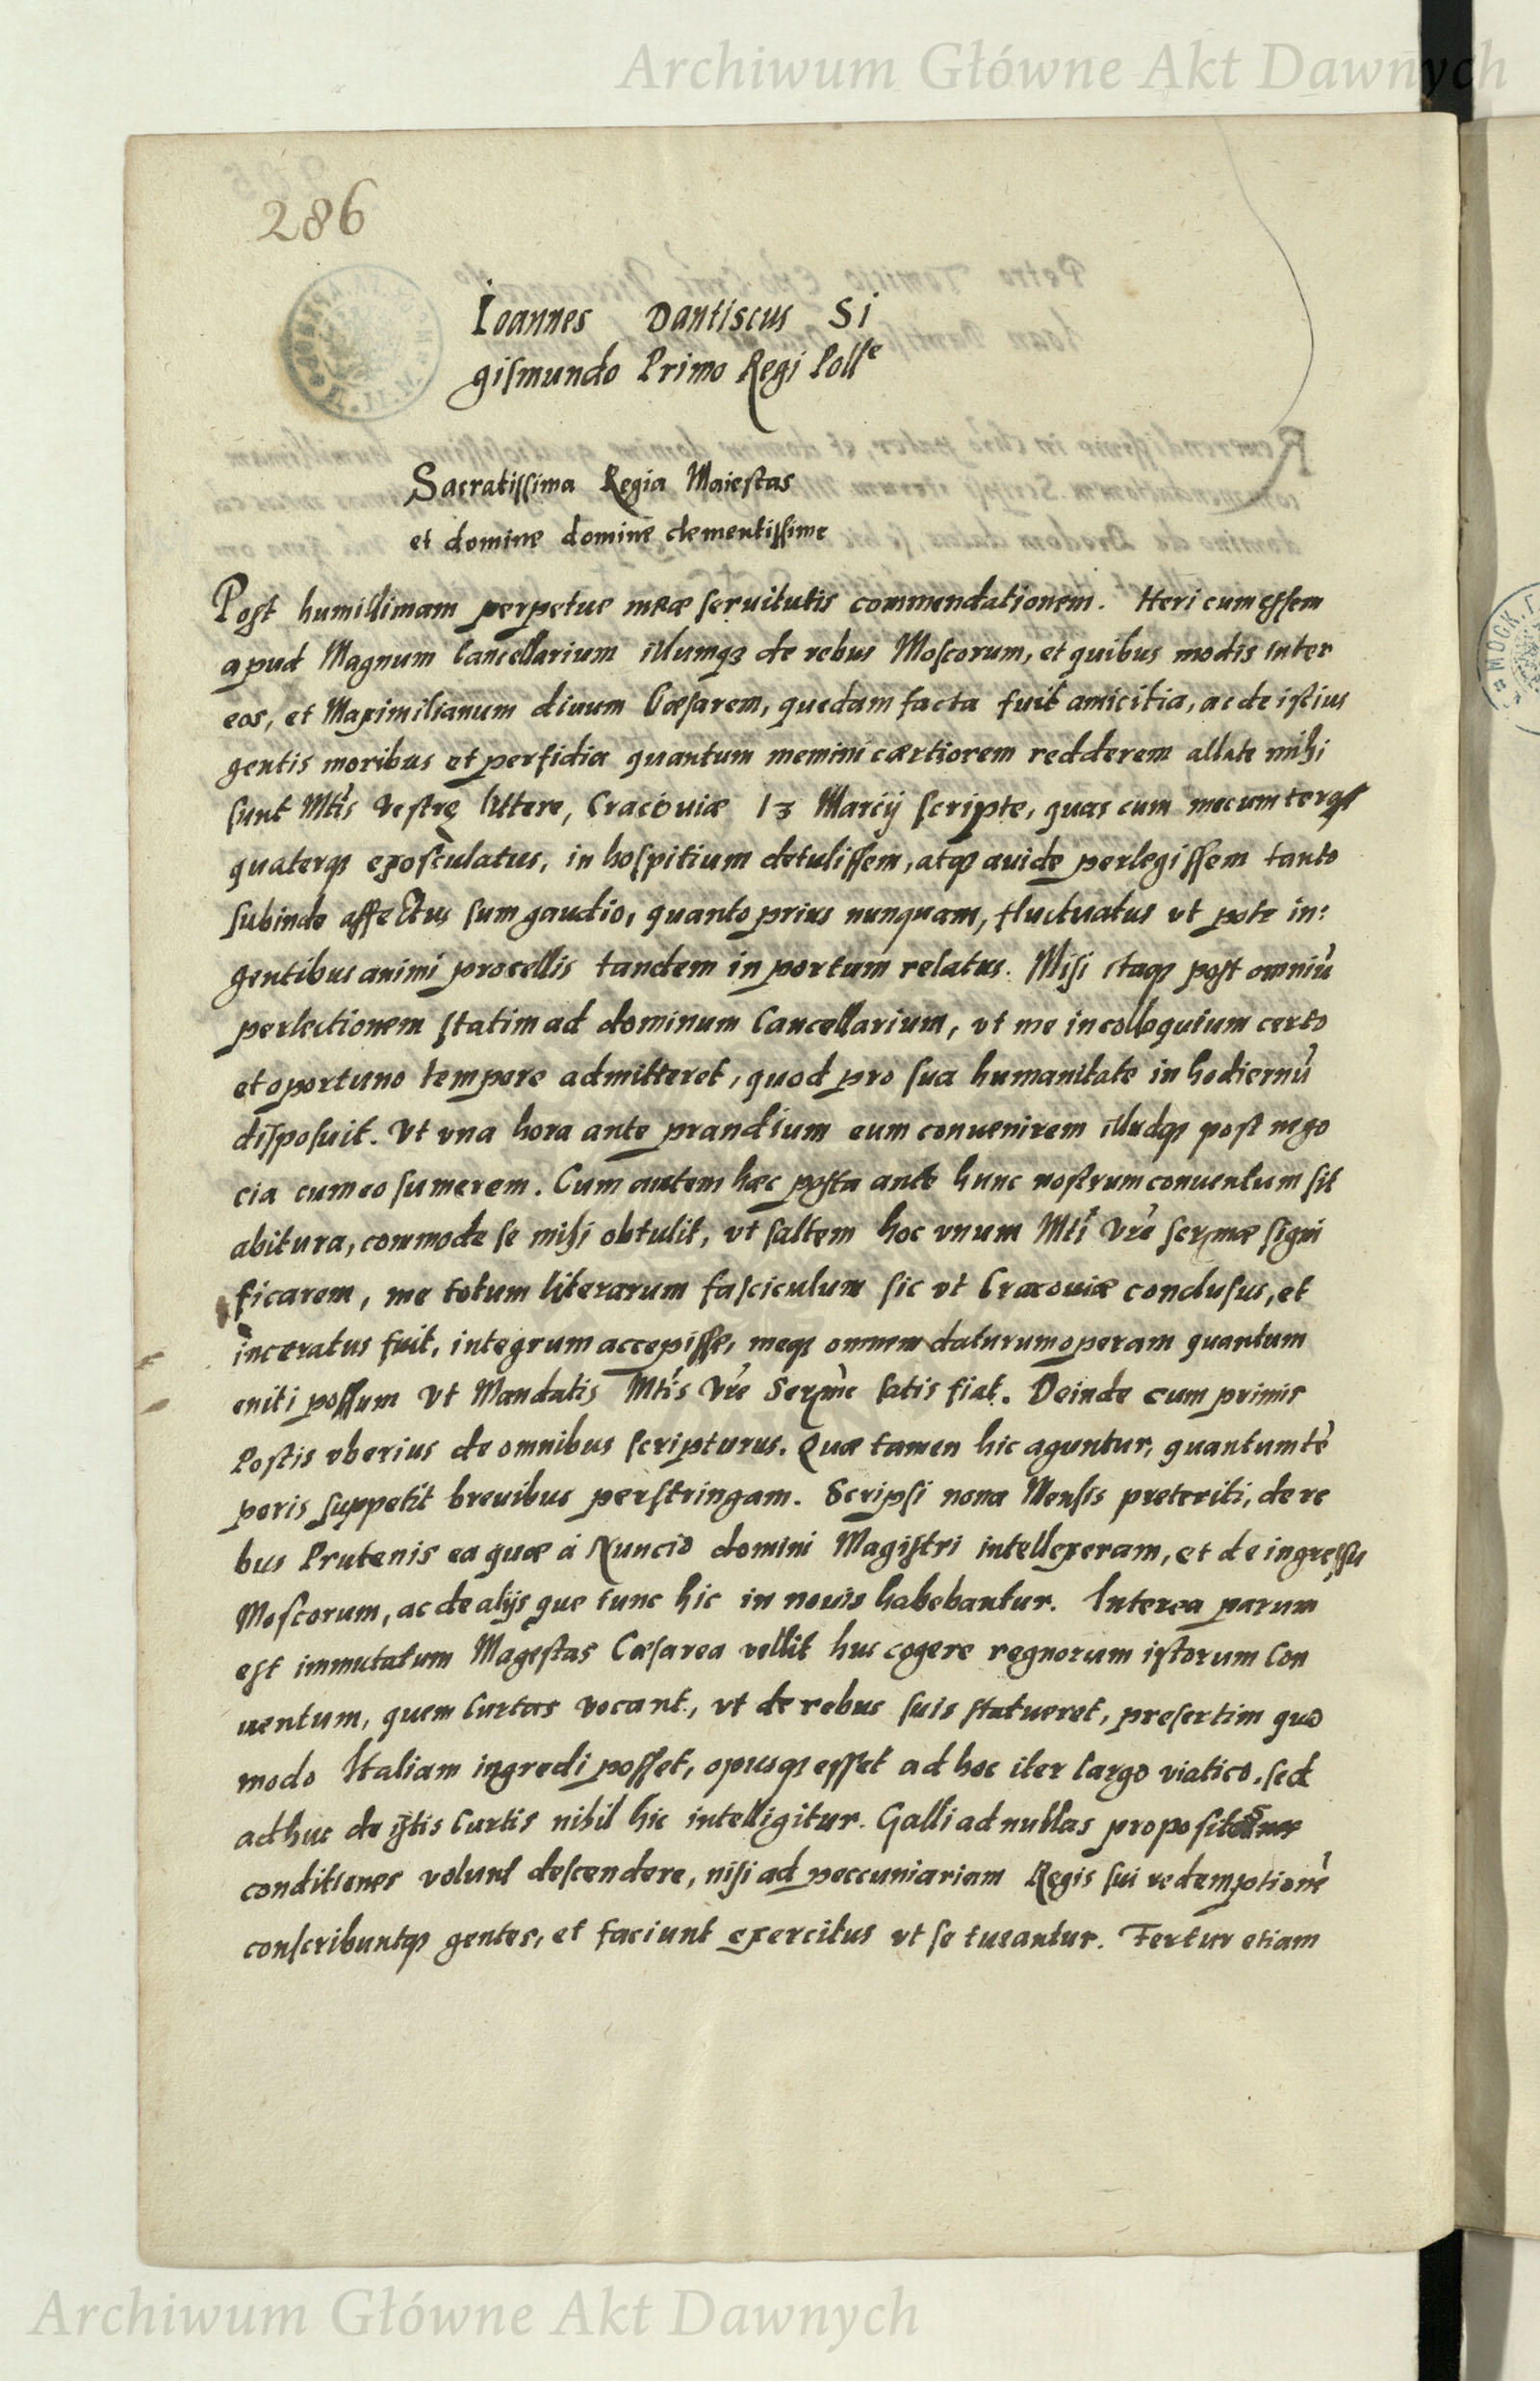 Archiwum Główne Akt Dawnych
286
Ioannes Dantiscus Si
gismundo Primo Regi Poll^e
Sacratissima Regia Maiestas
et domine domine clementissime
Post humillimam perpetue meæ seruitutis commendationem. Heri cum essem
apud Magnum Cancellarium illumq3 de rebus Moscorum, et quibus modis inter
eos, et Maximilianum diuum Cæsarem, quedam facta fuit amicitia, ac de istius
gentis moribus et perfidia quantum memini cærtiorem redderem allate mihi
sunt Mtis Vestrę littere, Cracoviæ 13 Marcij scripte, quas cum mecum terq3
quaterq3 exosculatus, in hospitium detulissem, atq3 auide perlegissem tanto
subinde affectus sum gaudio, quanto prius nunquam, fluctuatus vt pote in:
gentibus animi procellis tandem in portum relatus. Misi itaq3 post omniu̅
perlectionem statim ad dominum Cancellarium, vt me in colloquium certo
et oportuno tempore admitteret, quod pro sua humanitate in hodiernu̅
disposuit. Vt vna hora ante prandium eum convenirem illudq3 post nego
cia cum eo sumerem. Cum autem hæc posta ante hunc nostrum conuentum sit
abitura, commode se mihi obtulit, vt saltem hoc vnum Mti Vre sermæ signi
ficarem, me totum literarum fasciculum sic vt Cracoviæ conclusus, et
inceratus fuit, integrum accepisse, meq3 omnem daturum operam quantum
eniti possum Vt Mandatis Mtis Vre Serme satis fiat. Deinde cum primis
Postis vberius de omnibus scripturus. Quæ tamen hic aguntur, quantum te̅
poris suppetit breuibus perstringam. Scripsi nona Mensis preteriti, de re
bus Prutenis ea quæ à Nuncio domini Magistri intellexeram, et de ingressu
Moscorum, ac de alijs que tunc hic in nouis habebantur. Interea parum
est immutatum Magestas Cæsarea vellit huc cogere regnorum istorum Con
uentum, quem Curtas vocant, vt de rebus suis statueret, presertim quo
modo Italiam ingredi posset, opusq3 esset ad hoc iter largo viatico, sed
adhuc de istis Curtis nihil hic intelligitur. Galli ad nullas propositas
conditiones volunt descendere, nisi ad peccuniariam Regis sui redemptione̅
conscribuntq3 gentes, et faciunt exercitus vt se tueantur. Fertur etiam
Archiwum Główne Akt Dawnych